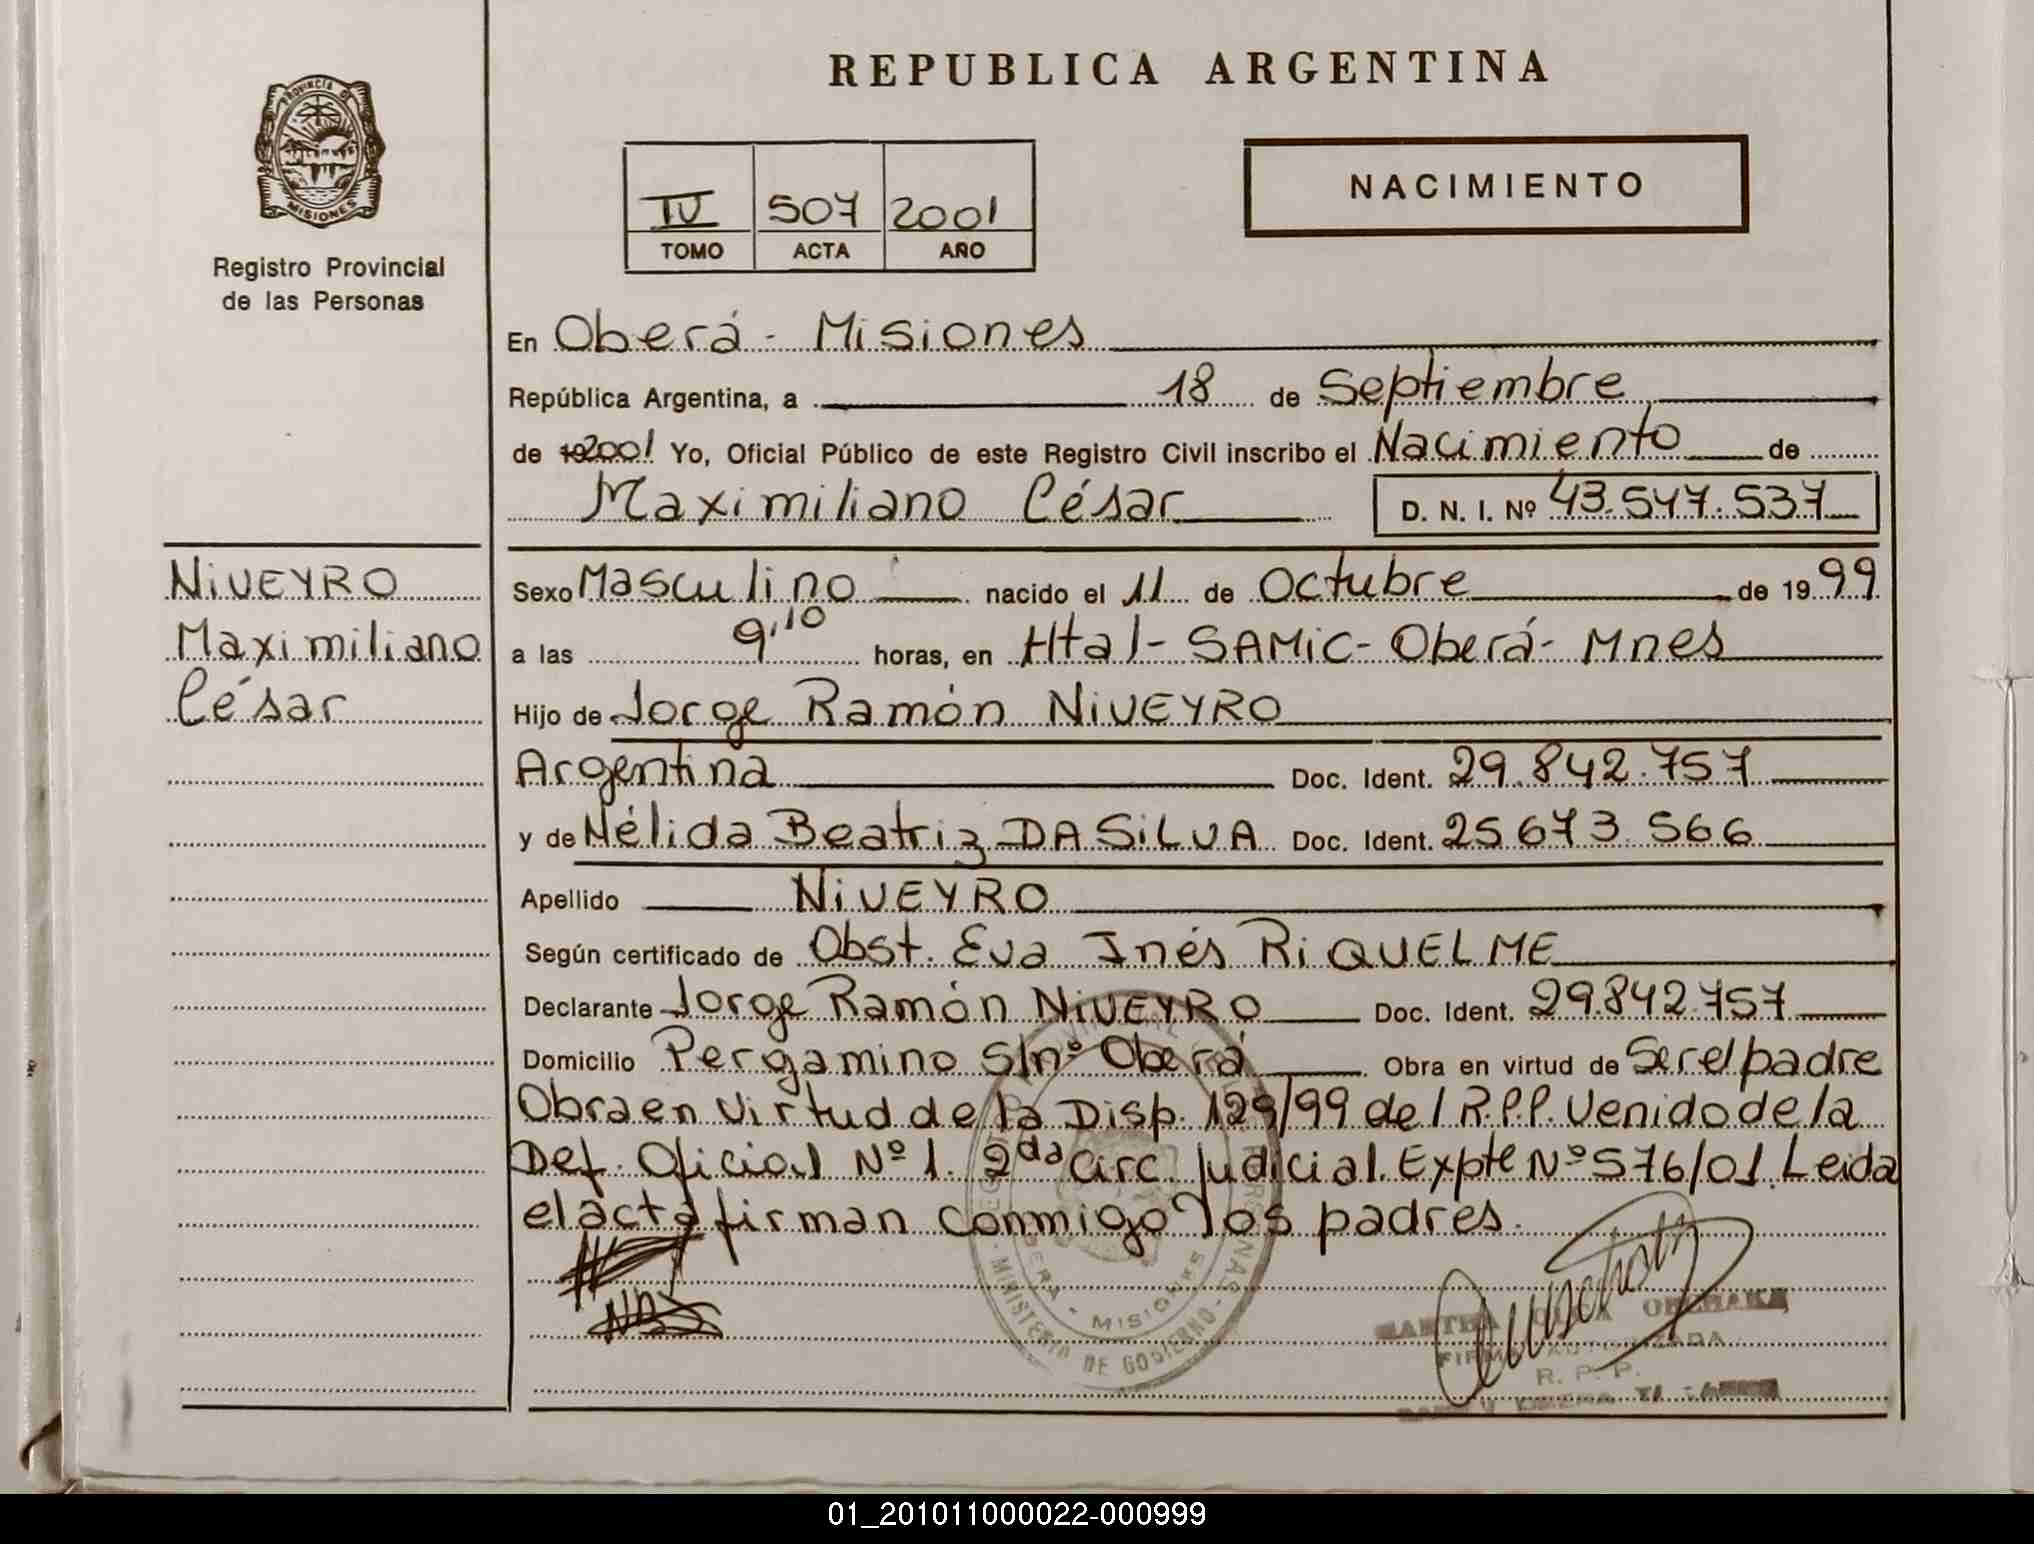 REPUBLICA ARGENTINA
PROVINCIA DE
MISIONES
Registro Provincial
de las Personas
IV 507 2001
TOMO ACTA AÑO
NACIMIENTO
En Oberá - Misiones
República Argentina, a 18 de Septiembre
de 2001 Yo, Oficial Público de este Registro Civil inscribo el Nacimiento de
Maximiliano César D. N. I. Nº 43.547.537
NIVEYRO
Maximiliano
César
Sexo Masculino nacido el 11 de Octubre de 1999
a las 9,10 horas, en Htal- SAMIC- Oberá- Mnes
Hijo de Jorge Ramón NIVEYRO
Argentina Doc. Ident. 29.842.757
y de Nélida Beatriz DA SILVA Doc. Ident. 25673.566
Apellido NIVEYRO
Según certificado de Obst. Eva Inés RIQUELME
Declarante Jorge Ramón NIVEYRO Doc. Ident. 29.842.757
Domicilio Pergamino S/nº Oberá Obra en virtud de Ser el padre
Obra en Virtud de la Disp. 129/99 del R.P.P. Venido de la
Def. Oficial Nº 1. 2da Circ. Judicial. Expte Nº 576/01. Leida
el acta firman conmigo los padres.
OBERA - MISIONES
MINISTERIO DE GOBIERNO
FIRMA AUTORIZADA
R. P. P.
01_201011000022-000999